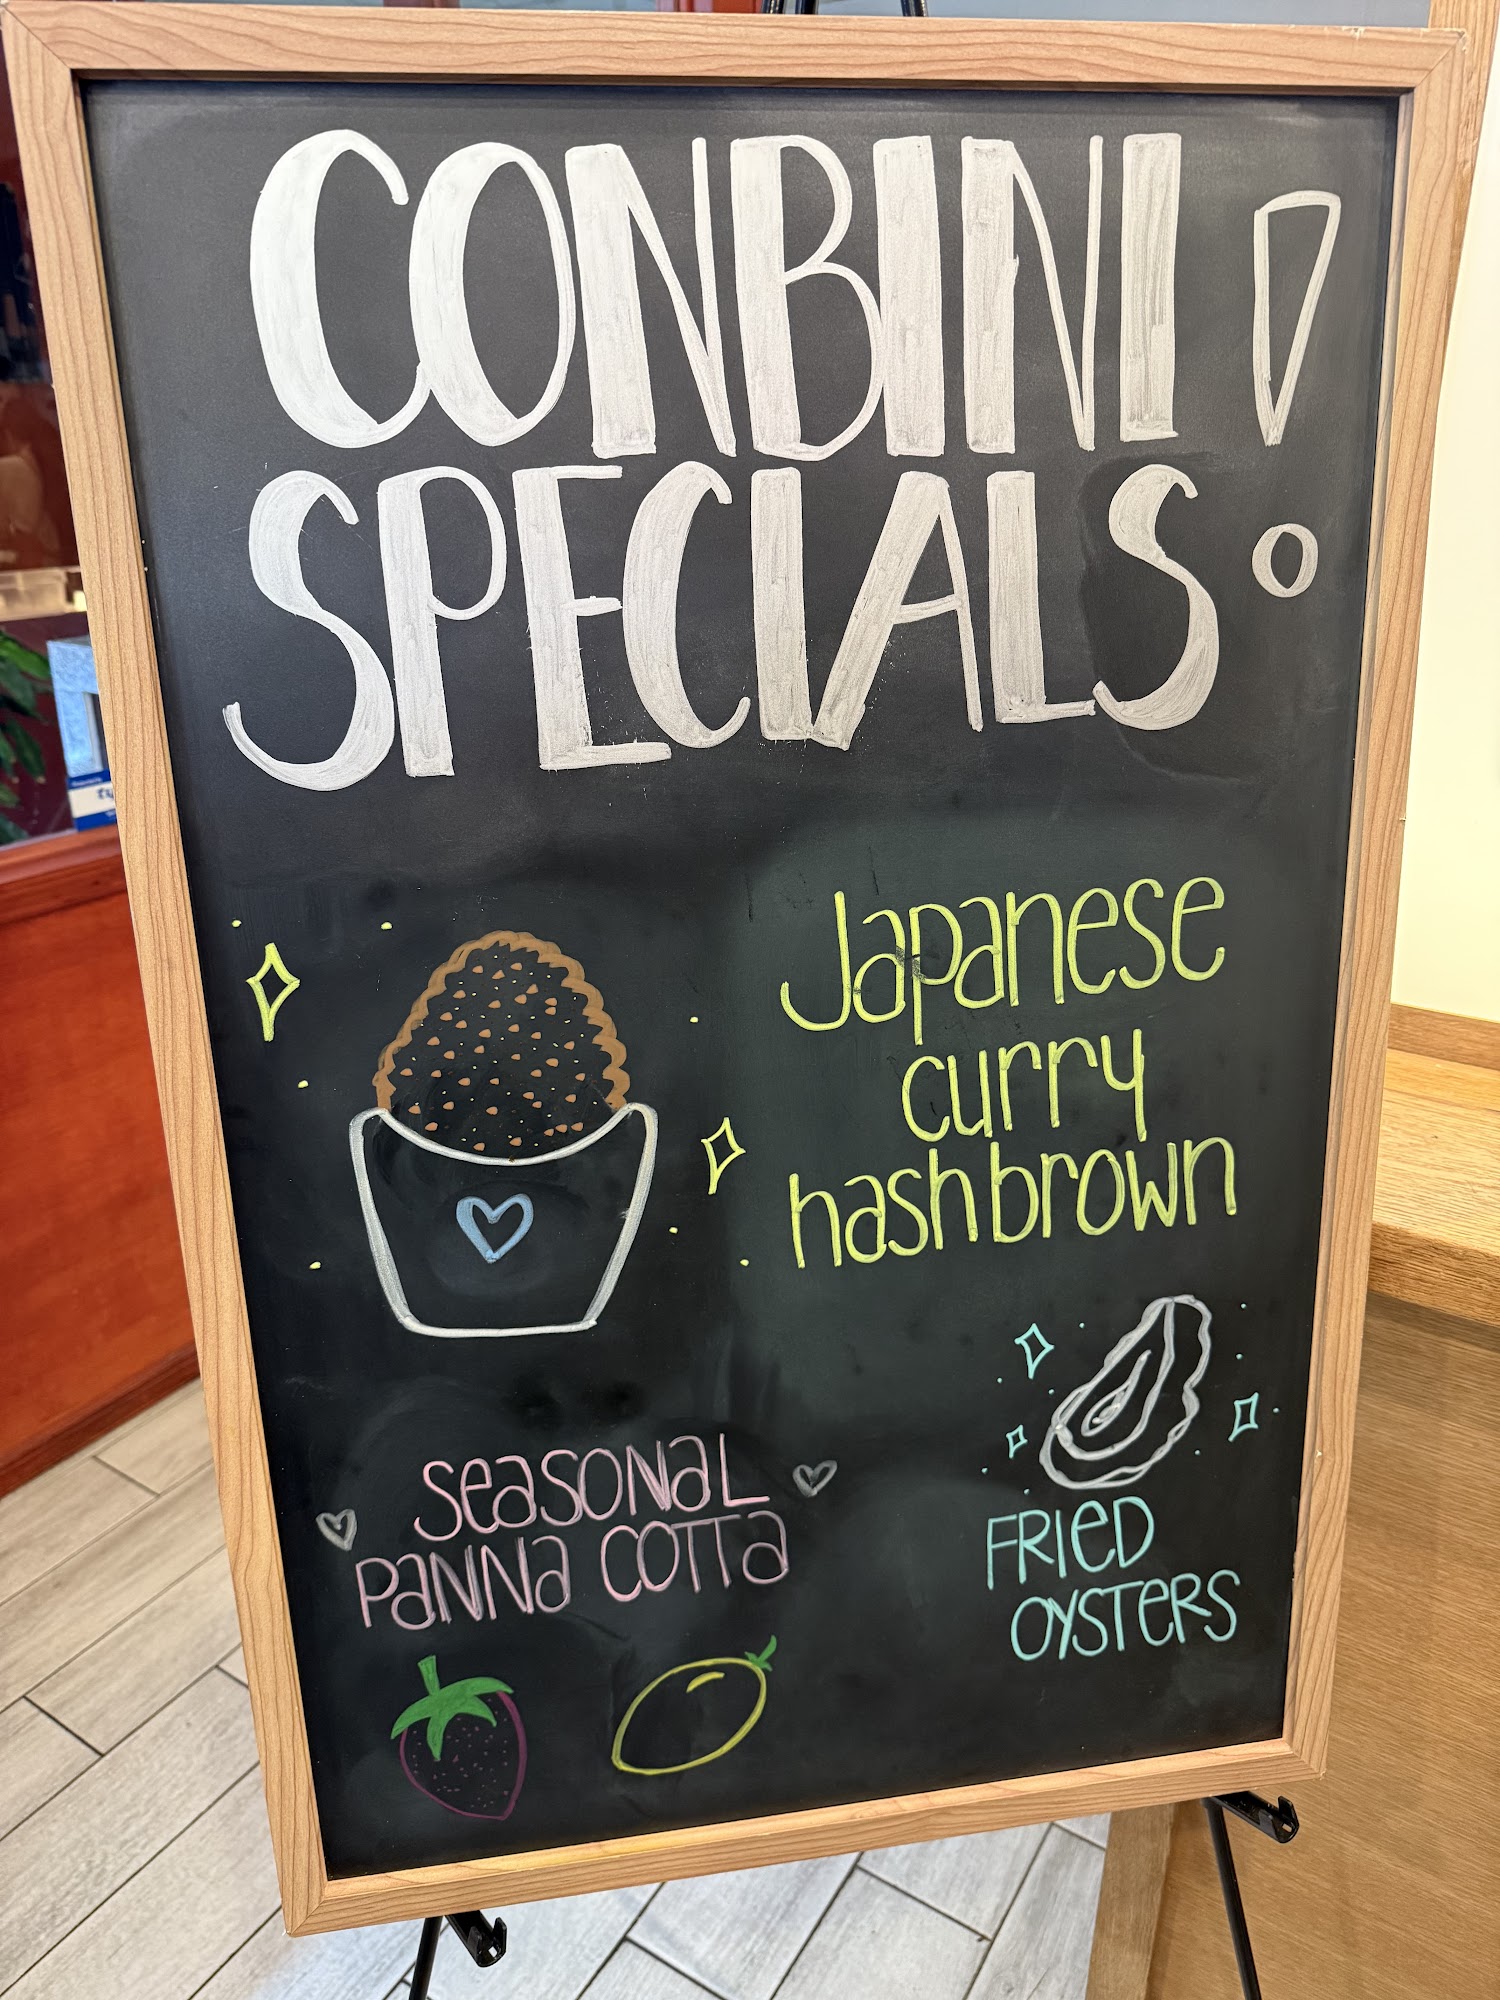 CONBINI!
SPECIALS
Japanese
curry
hashbrown
SEASONAL
PANNA COTTA
FRIED
OYSTERS